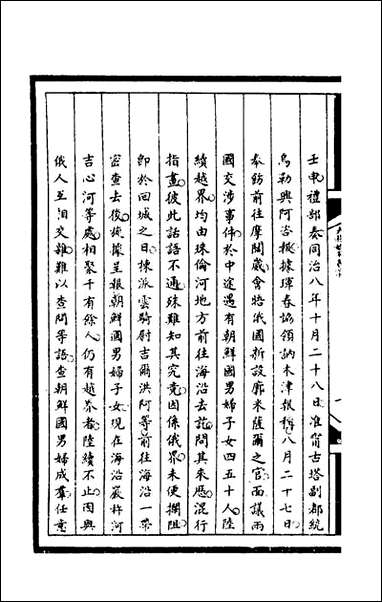 壬申禮部奏同治八年十月二十八日准甯古塔副都統
烏勒興阿咨據琿春協領訥木津報稱八月二十七日
奉飭前往摩闊崴會晤俄國新設廓米薩爾之官面議兩
國交涉事件於中途遇有朝鮮國男婦子女四五十人陸
續越界均由珠倫河地方前往海沿去訖問其來歷混行
指畫彼此話語不通殊難知其究竟因係俄界未便攔阻
即於回城之日揀派雲騎尉吉爾洪阿等前往海沿一帶
密查去後旋據呈報朝鮮國男婦子女現在海沿巖杵河
吉心河等處相聚千有餘人仍有越界者陸續不止因與
俄人互相交雜難以查問等語查朝鮮國男婦成羣任意